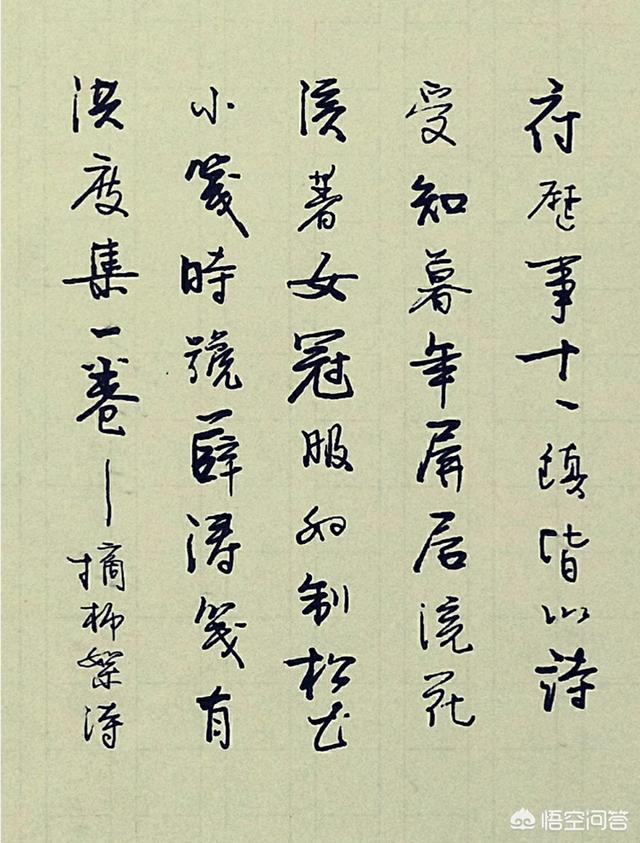 府歷事十一鎮皆以詩
受知暮年屏居浣花
溪著女冠服好制松花
小箋時號薛濤箋有
洪度集一卷——摘柳絮詩
悟空问答